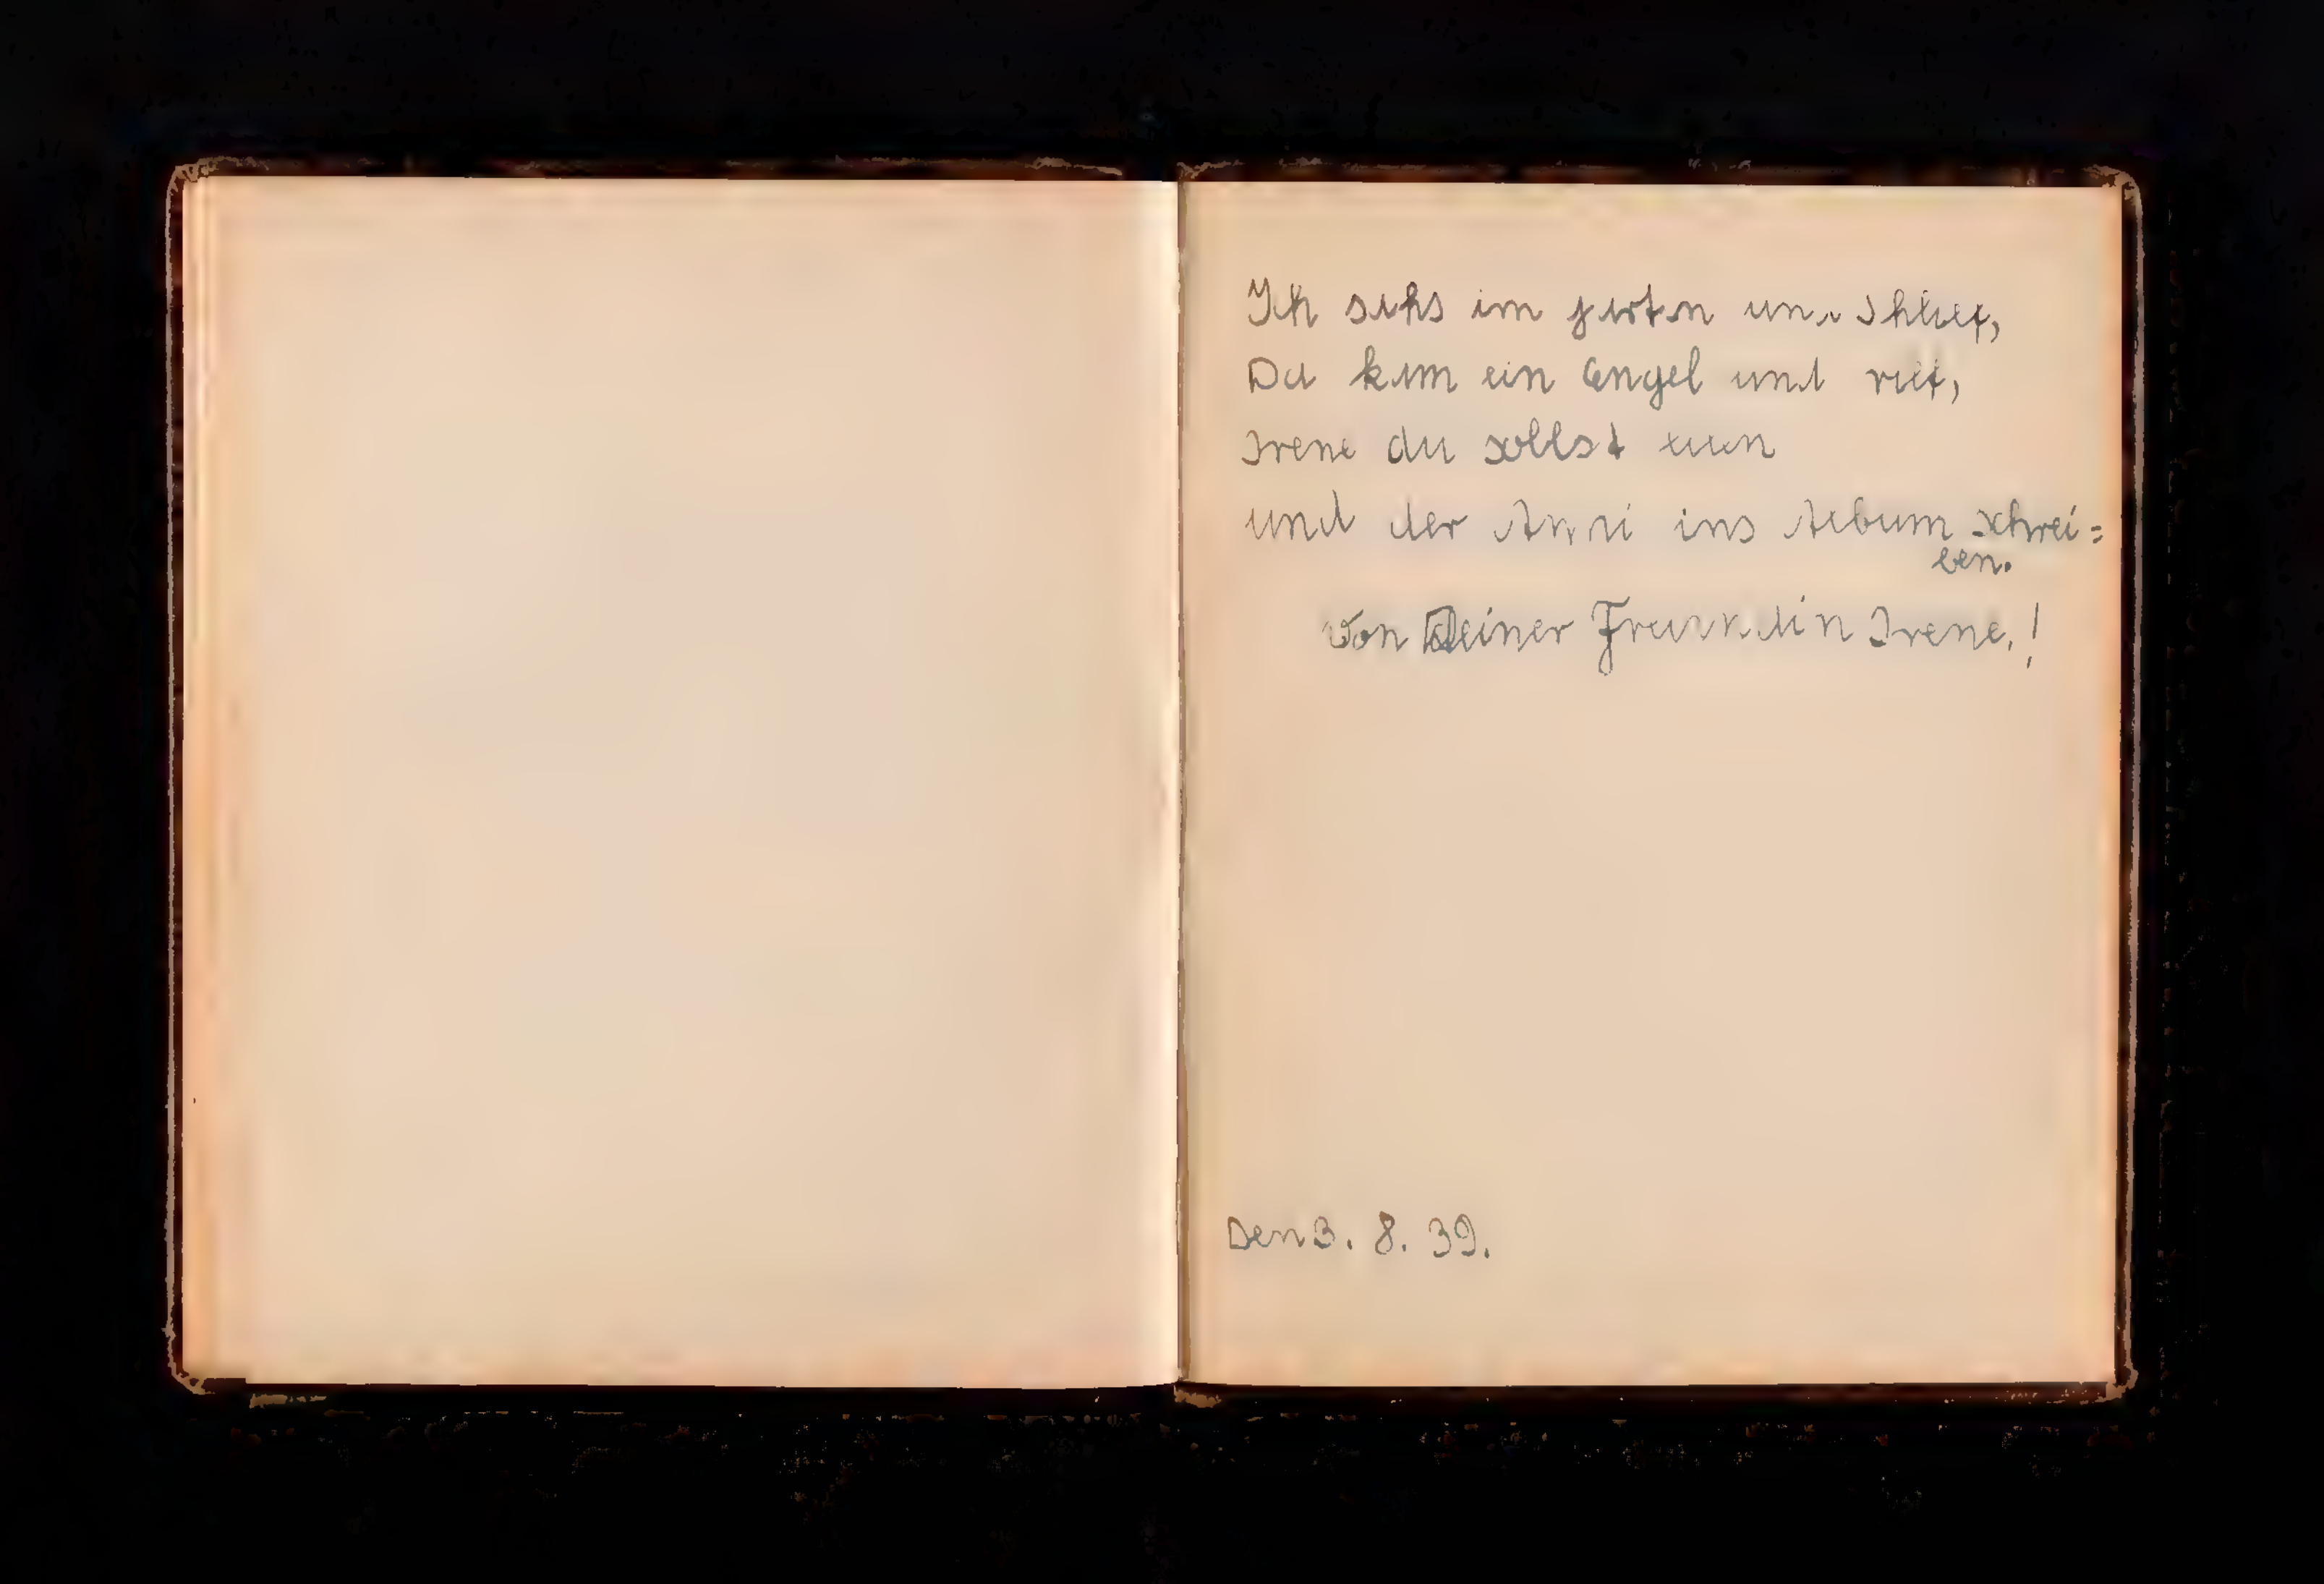 Ich sahs im garten und schlief,
Da kam ein Engel und rief,
Irene du sollst eun
und der Anni ins Album schrei=
ben.
Von Deiner Freundin Irene.!
Den 3. 8. 39.